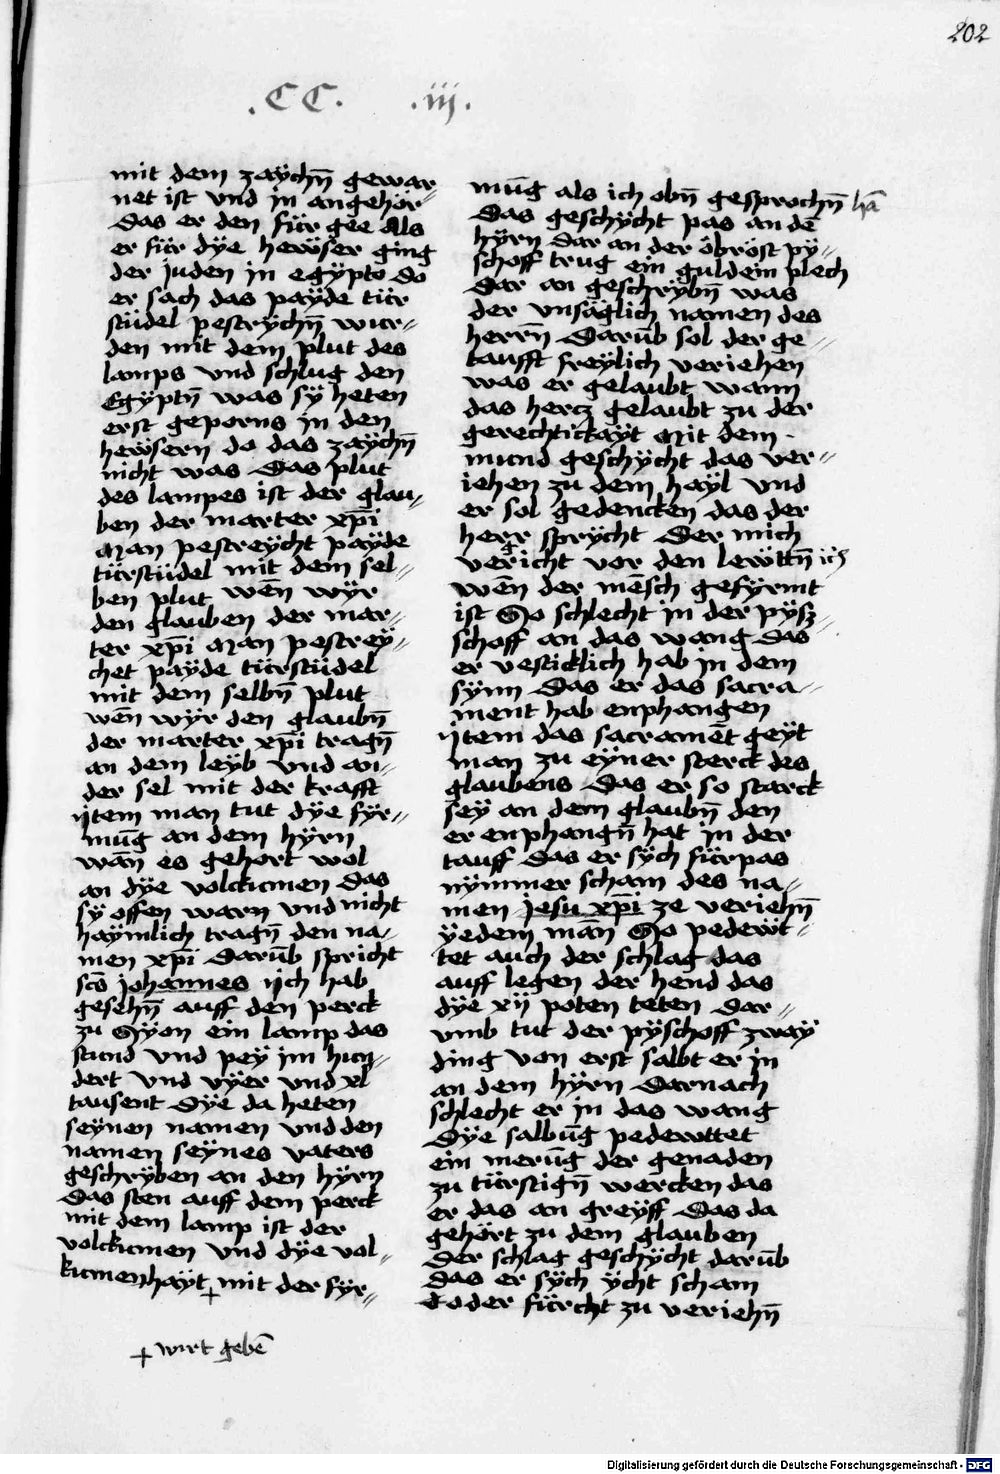 202
.CC. .iij.
mit dem zaÿchn̄ gewar-
net ist vnd in angehör-
das er den für gee Als
er für dÿe hewser ging
der juden in egÿpto do
er sach das paÿde tür
stüdel pestrÿchn̄ wur-
den mit dem plut des
lamps vnd schlug den
Egÿptn̄ was sÿ heten
erst geporns in den
hewsern do das zaÿchn̄
nicht was Das plut
des lampes ist der glau-
ben der marter xp̄i
Man pestreÿcht paÿde
türstüdel mit dem sel-
ben plut wēn wÿr
den glauben der mar-
ter xp̄i Man pestreÿ-
chet paÿde türstüdel
mit dem selbn̄ plut
wēn wÿr den glaubn̄
der marter xp̄i tragn̄
an dem leÿb vnd an-
der sel mit der krafft
ijtem man tut dÿe fÿr-
mūg an dem hÿrn
wān es gehort wol
an dÿe volckumen das
sÿ offen warn vnd nicht
haÿmlich tragn̄ den na-
men xp̄i Darūb spricht
scs̄ johannes ijch hab
gesehn̄ auff den perck
zu Sÿon ein lamp das
stund vnd peÿ im hun-
dert vnd vÿer vnd xl
tausent Dÿe da heten
seÿnen namen vnd den
namen seÿnes vaters
geschrÿben an den hÿrn
Das sten auff dem perck
mit dem lamp ist der
volckumen vnd dÿe vol-
kumenhaÿt + mit der fÿr-
+ wirt gebē
mūg als ich obn̄ gesprochn̄ hā
Das geschÿcht pas an dē
hÿrn dar an der öbröst pÿ-
schoff trug ein guldein plech
Dar an geschrÿbn̄ was
der vnsäglich namen des
herrn̄ Darūb sol der ge-
taufft freÿlich veriehen
was er gelaubt wann
das hercz gelaubt zu der
gerechtickaÿt Mit dem
mund geschÿcht das ver-
iehen zu dem haÿl vnd
er sol gedencken das der
herr sprÿcht Der mich
vericht vor den lewttn̄ ich
wēn der mēsch gefÿrmt
ist So schlecht in der pÿsz-
schoff an das wang das
er vesticklich hab in dem
sÿnn Das er das sacra-
ment hab enphangen
ijtem das sacramēt geÿt
man zu eÿner sterck des
glaubens Das er so starck
seÿ an dem glaubn̄ den
er enphangn̄ hat in der
tauff Das er sÿch fürpas
nÿmmer scham des na-
men jesu xp̄i ze veriehn̄
ÿedem mān So pedewt-
tet auch der schlag das
auff legen der hend das
dÿe xij poten teten Dar-
vmb tut der pÿschoff zwaÿ
ding von erst salbt er in
an dem hÿrn Darnach
schlecht er in das wang
Dÿe salbūg pedewttet
ein merūg der genaden
zu türstign̄ wercken das
er das an greÿff Das da
gehört zu dem glauben
Der schlag geschÿcht darūb
das er sÿch ÿcht scham
Toder fürcht zu veriehn̄
Digitalisierung gefördert durch die Deutsche Forschungsgemeinschaft - DFG